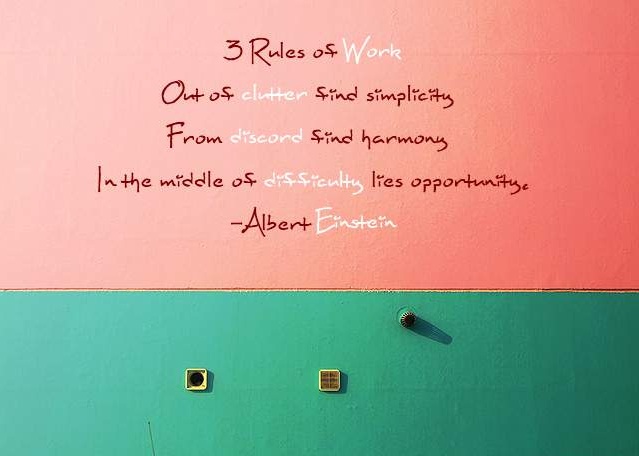 3 Rules of Work
Out of clutter find simplicity
From discord find harmony
In the middle of difficulty lies opportunity.
-Albert Einstein